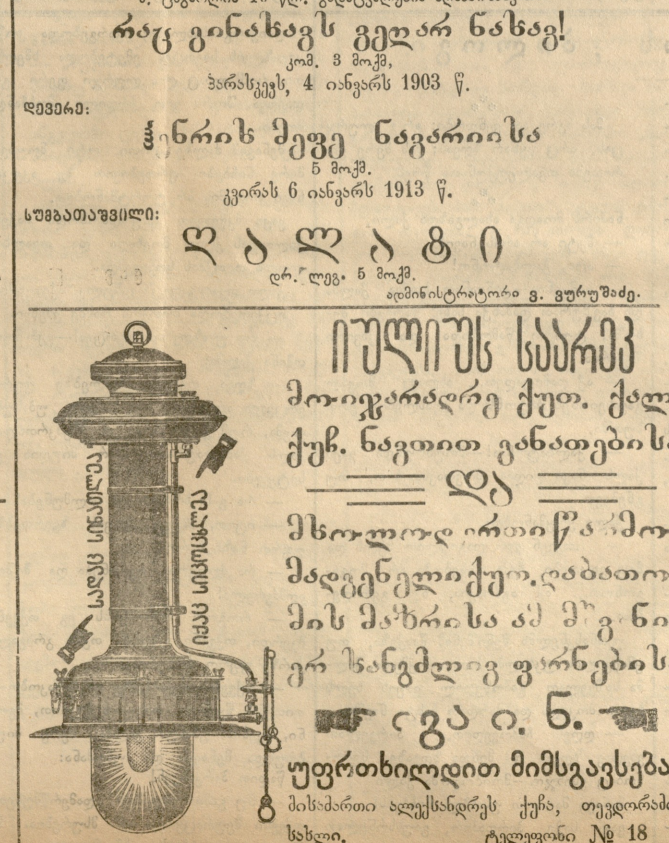 რაც გინახავს ველარ ნახავ!
კომ. 3 მოქმ,
პარასკევს, 4 იანვარს 1903 წ.
დევერე:
ჰენრის მეფე ნავარიისა
5 მოქმ.
კვირას 6 იანვარს 1913 წ.
სუმბათაშვილი:
ღალატი
დრ. ლეგ. 5 მოქმ.
ადმინისტრატორი ვ. ვურუშაძე.
იულიუს საარეკ
მოიჯარადრე ქუთ. ქალ
ქუჩ. ნავთით განათების
და
მხოლოდ ერთი წარმო
მადგენელი ქუთ. დაბათო
მის მაზრისა ამ
ფარნების
უფრთხილდით მიმსგავსება
მისამართი ალექსანდრეს ქუჩა, თევდორაძი
სახლი, ტელეფონი № 18